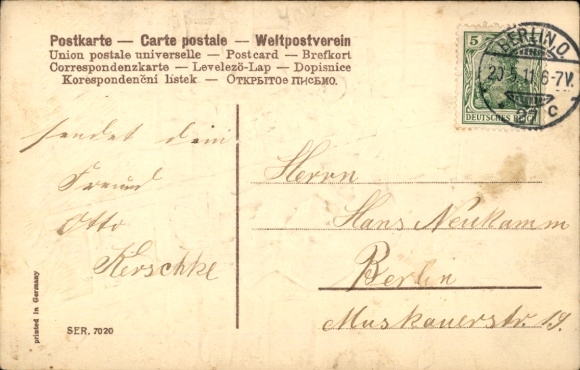 Postkarte — Carte postale — Weltpostverein
Union postale universelle — Postcard — Brefkort
Correspondenzkarte — Levelező-Lap — Dopisnice
Korespondenční lístek — Открытое письмо.
5
DEUTSCHES REICH
BERLIN O.
6-7V.
27 c
sendet dein
Freund
Otto
Kerschke
Herrn
Hans Neukamm
Berlin
Muskauerstr. 19.
printed in Germany
SER. 7020